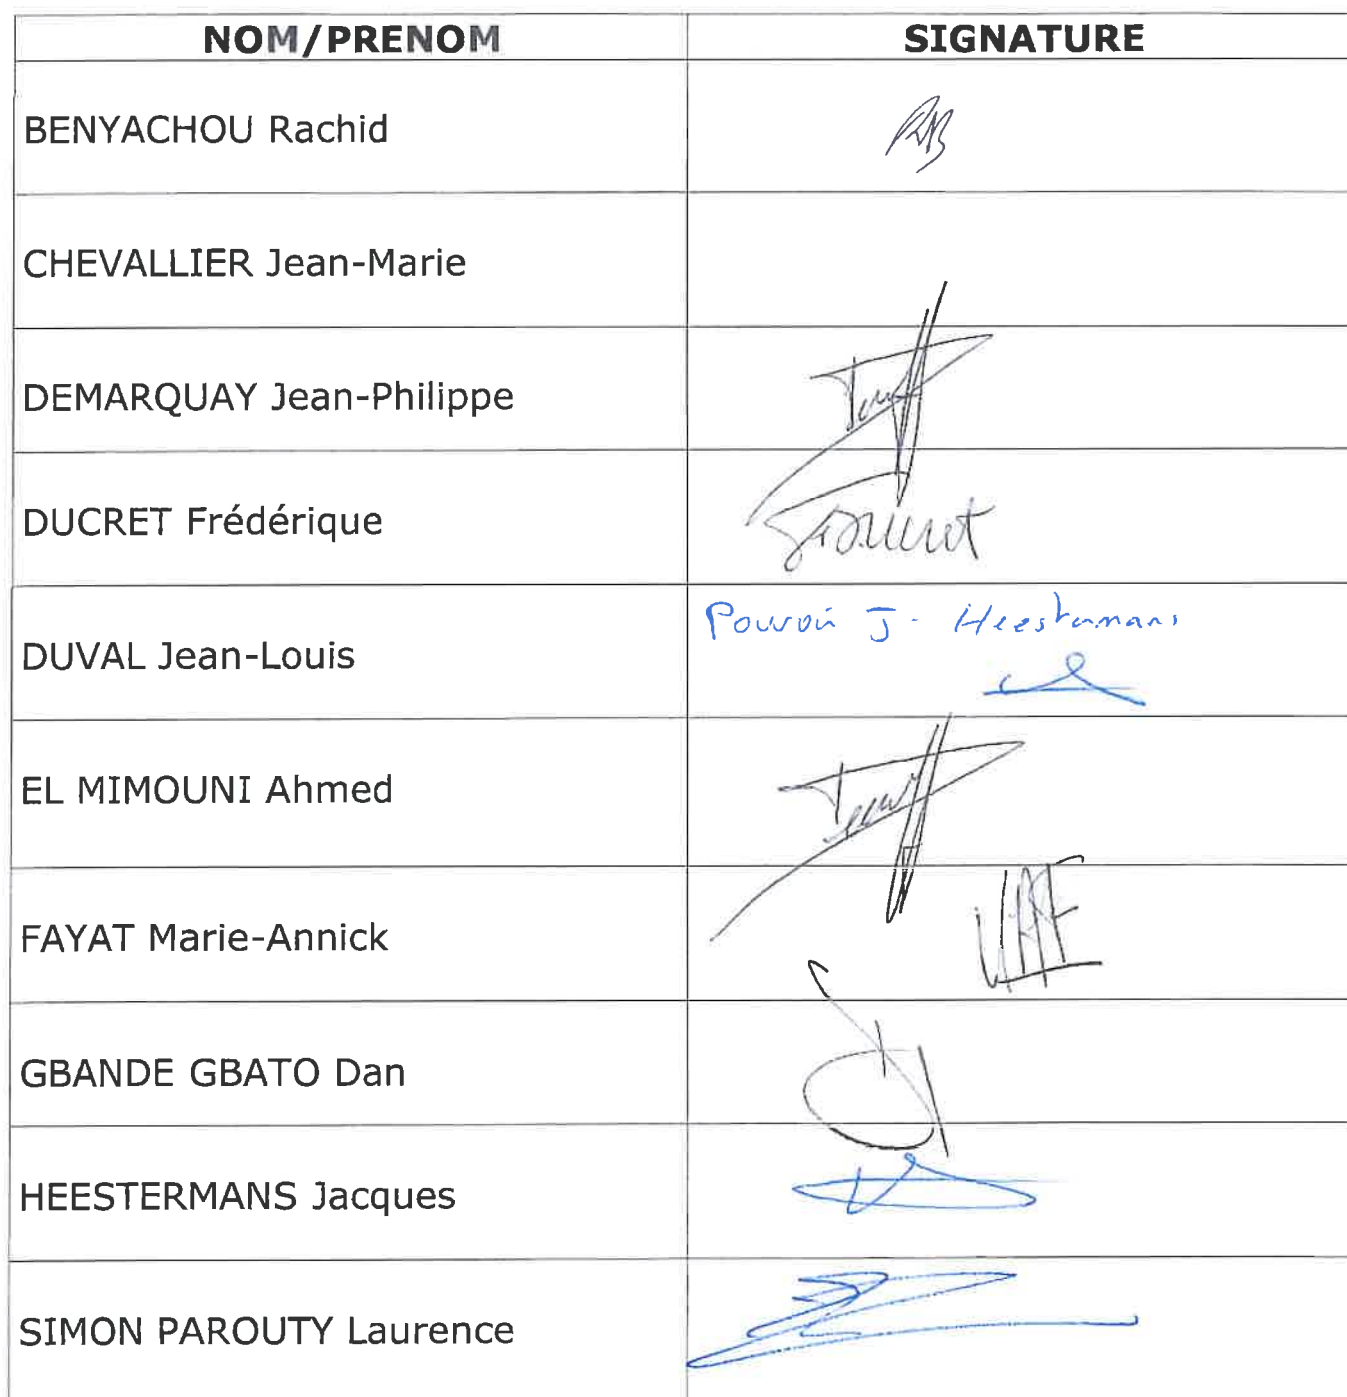 NOM/PRENOM SIGNATURE
BENYACHOU Rachid
CHEVALLIER Jean-Marie
DEMARQUAY Jean-Philippe
DUCRET Frédérique
Pouvoir J. Heestermans
DUVAL Jean-Louis
EL MIMOUNI Ahmed
FAYAT Marie-Annick
GBANDE GBATO Dan
HEESTERMANS Jacques
SIMON PAROUTY Laurence